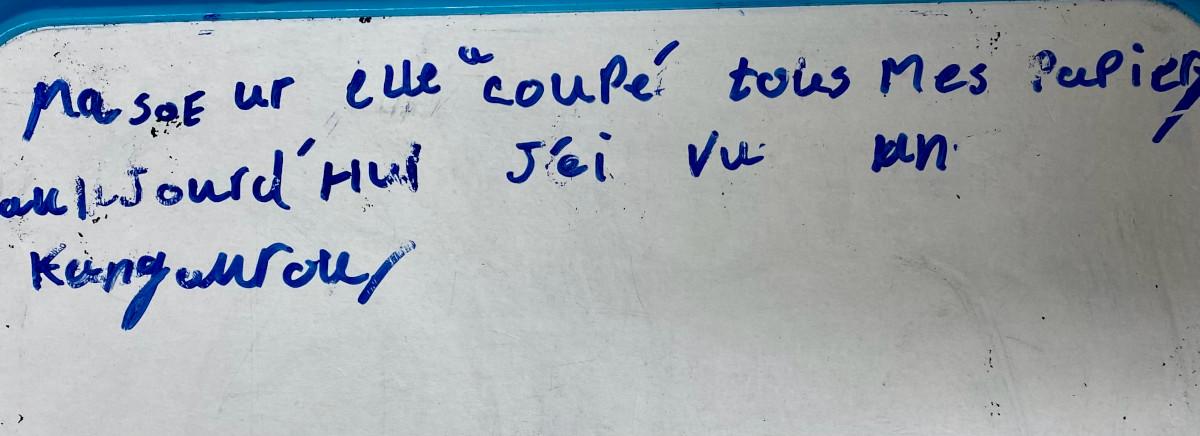 Ma soEur elle a coupé tous Mes Papiers,
aujourd'Hui J'ai Vu un
Kangourou,